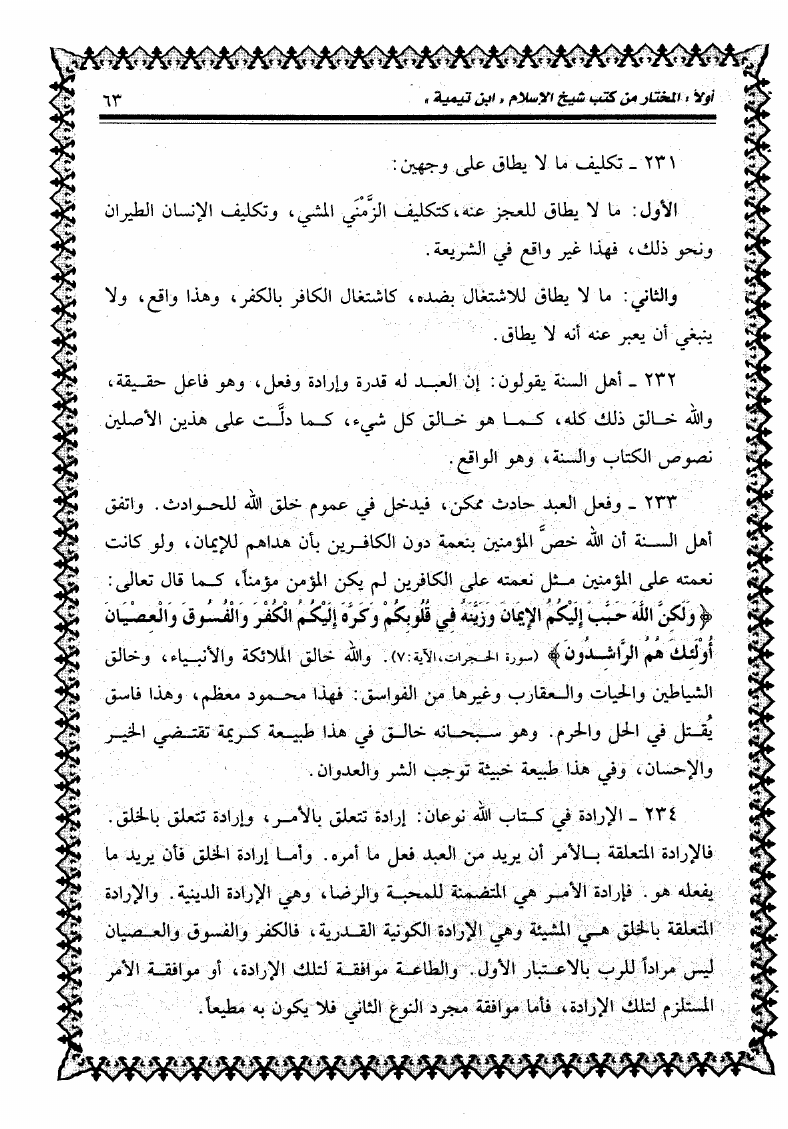 أولاً : المختار من كتب شيخ الإسلام « ابن تيمية » ٦٣
٢٣١ - تكليف ما لا يطاق على وجهين:
الأول: ما لا يطاق للعجز عنه، كتكليف الزَّمْنَي المشي، وتكليف الإنسان الطيران
ونحو ذلك، فهذا غير واقع في الشريعة.
والثاني: ما لا يطاق للاشتغال بضده، كاشتغال الكافر بالكفر، وهذا واقع، ولا
ينبغي أن يعبر عنه أنه لا يطاق.
٢٣٢ - أهل السنة يقولون: إن العبد له قدرة وإرادة وفعل، وهو فاعل حقيقة،
والله خالق ذلك كله، كما هو خالق كل شيء، كما دلَّت على هذين الأصلين
نصوص الكتاب والسنة، وهو الواقع.
٢٣٣ - وفعل العبد حادث ممكن، فيدخل في عموم خلق الله للحوادث. واتفق
أهل السنة أن الله خصَّ المؤمنين بنعمة دون الكافرين بأن هداهم للإيمان، ولو كانت
نعمته على المؤمنين مثل نعمته على الكافرين لم يكن المؤمن مؤمناً، كما قال تعالى:
﴿ وَلَكِنَّ اللَّهَ حَبَّبَ إِلَيْكُمُ الإِيمَانَ وَزَيَّنَهُ فِي قُلُوبِكُمْ وَكَرَّهَ إِلَيْكُمُ الْكُفْرَ وَالْفُسُوقَ وَالْعِصْيَانَ
أُوْلَئِكَ هُمُ الرَّاشِدُونَ ﴾ (سورة الحجرات، الآية:٧). والله خالق الملائكة والأنبياء، وخالق
الشياطين والحيات والعقارب وغيرها من الفواسق: فهذا محمود معظم، وهذا فاسق
يُقتل في الحل والحرم. وهو سبحانه خالق في هذا طبيعة كريمة تقتضي الخير
والإحسان، وفي هذا طبيعة خبيثة توجب الشر والعدوان.
٢٣٤ - الإرادة في كتاب الله نوعان: إرادة تتعلق بالأمر، وإرادة تتعلق بالخلق.
فالإرادة المتعلقة بالأمر أن يريد من العبد فعل ما أمره. وأما إرادة الخلق فأن يريد ما
يفعله هو. فإرادة الأمر هي المتضمنة للمحبة والرضا، وهي الإرادة الدينية. والإرادة
المتعلقة بالخلق هي المشيئة وهي الإرادة الكونية القدرية، فالكفر والفسوق والعصيان
ليس مراداً للرب بالاعتبار الأول. والطاعة موافقة لتلك الإرادة، أو موافقة الأمر
المستلزم لتلك الإرادة، فأما موافقة مجرد النوع الثاني فلا يكون به مطيعاً.